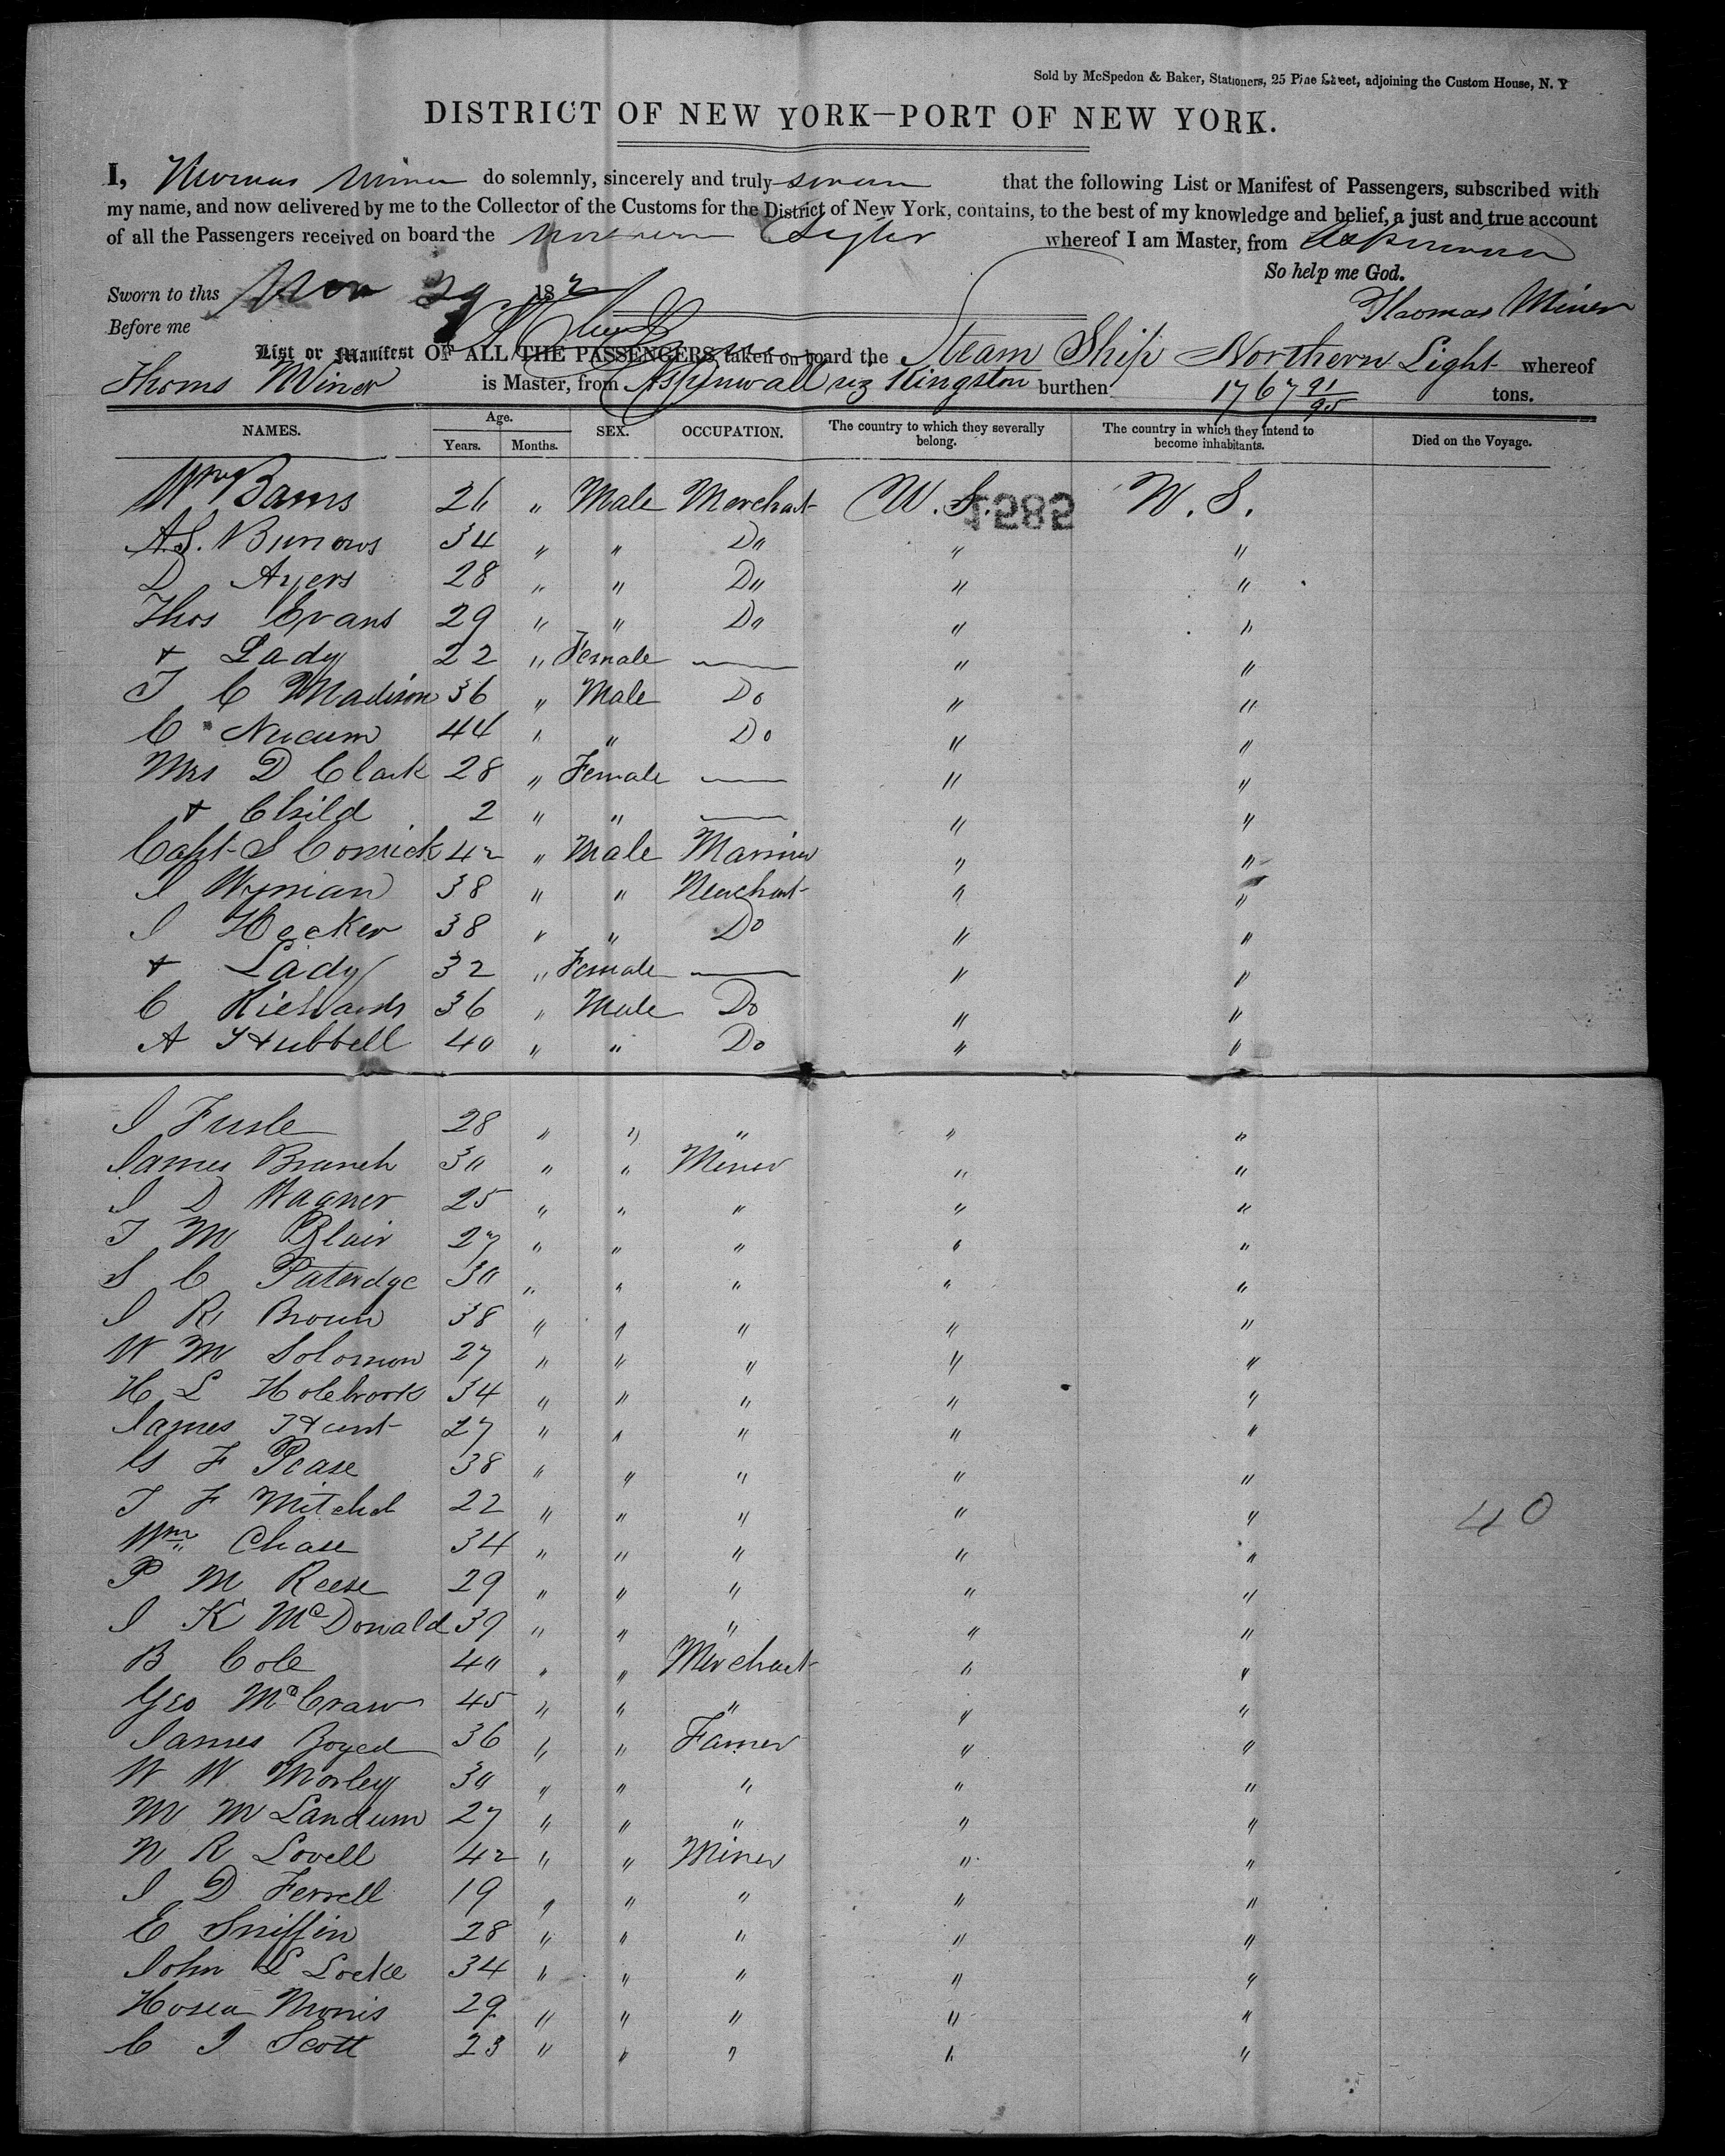 Sold by McSpedon & Baker, Stationers, 25 Pine Street, adjoining the Custom House, N. Y
DISTRICT OF NEW YORK—PORT OF NEW YORK.
I, Thomas Miner do solemnly, sincerely and truly swear that the following List or Manifest of Passengers, subscribed with
my name, and now delivered by me to the Collector of the Customs for the District of New York, contains, to the best of my knowledge and belief, a just and true account
of all the Passengers received on board the Northern Light whereof I am Master, from Aspinwall
So help me God.
Sworn to this Nov 29 182
Thomas Miner
Before me
List or Manifest OF ALL THE PASSENGERS taken on board the Steam Ship Northern Light whereof
Thoms Miner is Master, from Aspinwall viz Kingston burthen 1767 91/95 tons.
NAMES. Age. Years. Months. SEX. OCCUPATION. The country to which they severally belong. The country in which they intend to become inhabitants. Died on the Voyage.
Wm Barns 26 " Male Merchant U.S. U.S.
A.S. Burrows 34 " " Do " "
D Ayers 28 " " Do " "
Thos Evans 29 " " Do " "
+ Lady 22 " Female — " "
T C Madison 36 " Male Do " "
C Nucum 44 " " Do " "
Mrs D Clark 28 " Female — " "
+ Child 2 " " — " "
Capt S Comick 42 " Male Marriner " "
I Wyman 38 " " Merchant " "
I Hecker 38 " " Do " "
+ Lady 32 " Female — " "
C Richards 36 " Male Do " "
A Hubbell 40 " " Do " "
I Fusle 28 " " " " "
James Branch 30 " " Miner " "
I D Wagner 25 " " " " "
T M Blair 27 " " " " "
S C Paterdge 30 " " " " "
I R Broun 38 " " " " "
W M Solomon 27 " " " " "
H L Holebrook 34 " " " " "
James Hunt 27 " " " " "
G F Pease 38 " " " " "
T F Mitchel 22 " " " " "
40
Wm Chase 34 " " " " "
P M Reese 29 " " " " "
I K McDonald 39 " " " " "
B Cole 40 " " Merchant " "
Geo McCraw 45 " " " " "
James Boyed 36 " " Famer " "
W W Morley 30 " " " " "
M M Landum 27 " " " " "
N R Lovell 42 " " Miner " "
I D Ferrell 19 " " " " "
E Sniffin 28 " " " " "
John L Locke 34 " " " " "
Hosea Morris 29 " " " " "
C I Scott 23 " " " " "